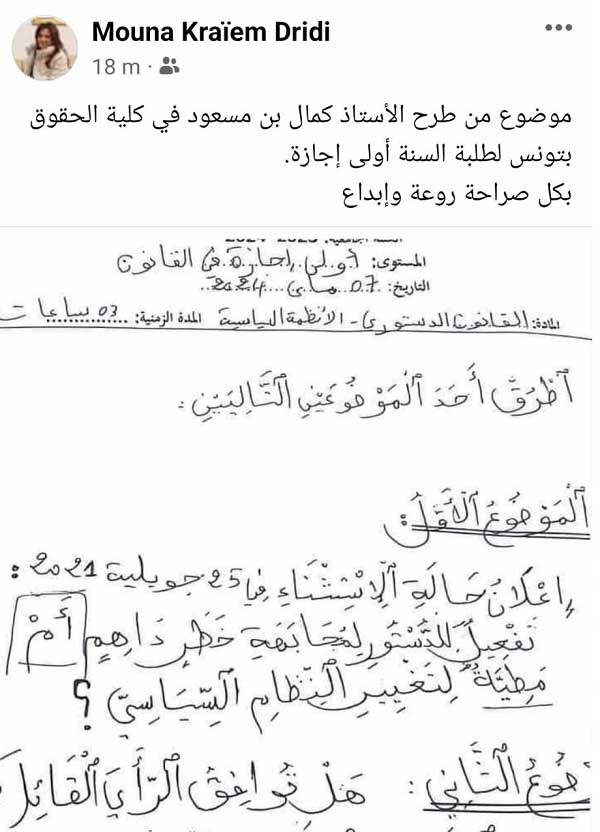 Mouna Kraïem Dridi
18 m ·
موضوع من طرح الأستاذ كمال بن مسعود في كلية الحقوق
بتونس لطلبة السنة أولى إجازة.
بكل صراحة روعة وإبداع
المستوى: أولى إجازة في القانون
التاريخ: 07 ماي 2024
المادة: القانون الدستوري - الأنظمة السياسية المدة الزمنية: 03 ساعات
ٱطْرُقْ أَحَدَ ٱلْمَوْضُوعَيْنِ ٱلتَّالِيَيْنِ :
ٱلْمَوْضُوعُ ٱلْأَوَّلُ :
إِعْلَانُ حَالَةِ ٱلْإِسْتِثْنَاءِ في 25 جويلية 2021 :
تَفْعِيلٌ لِلدُّسْتُورِ لِمُجَابَهَةِ خَطَرٍ دَاهِمٍ أَمْ
مَطِيَّةٌ لِتَغْيِيرِ ٱلنِّظَامِ ٱلسِّيَاسِيِّ ؟
ضُوعُ ٱلثَّانِي : هَلْ تُوَافِقُ ٱلرَّأْيَ ٱلْقَائِلَ